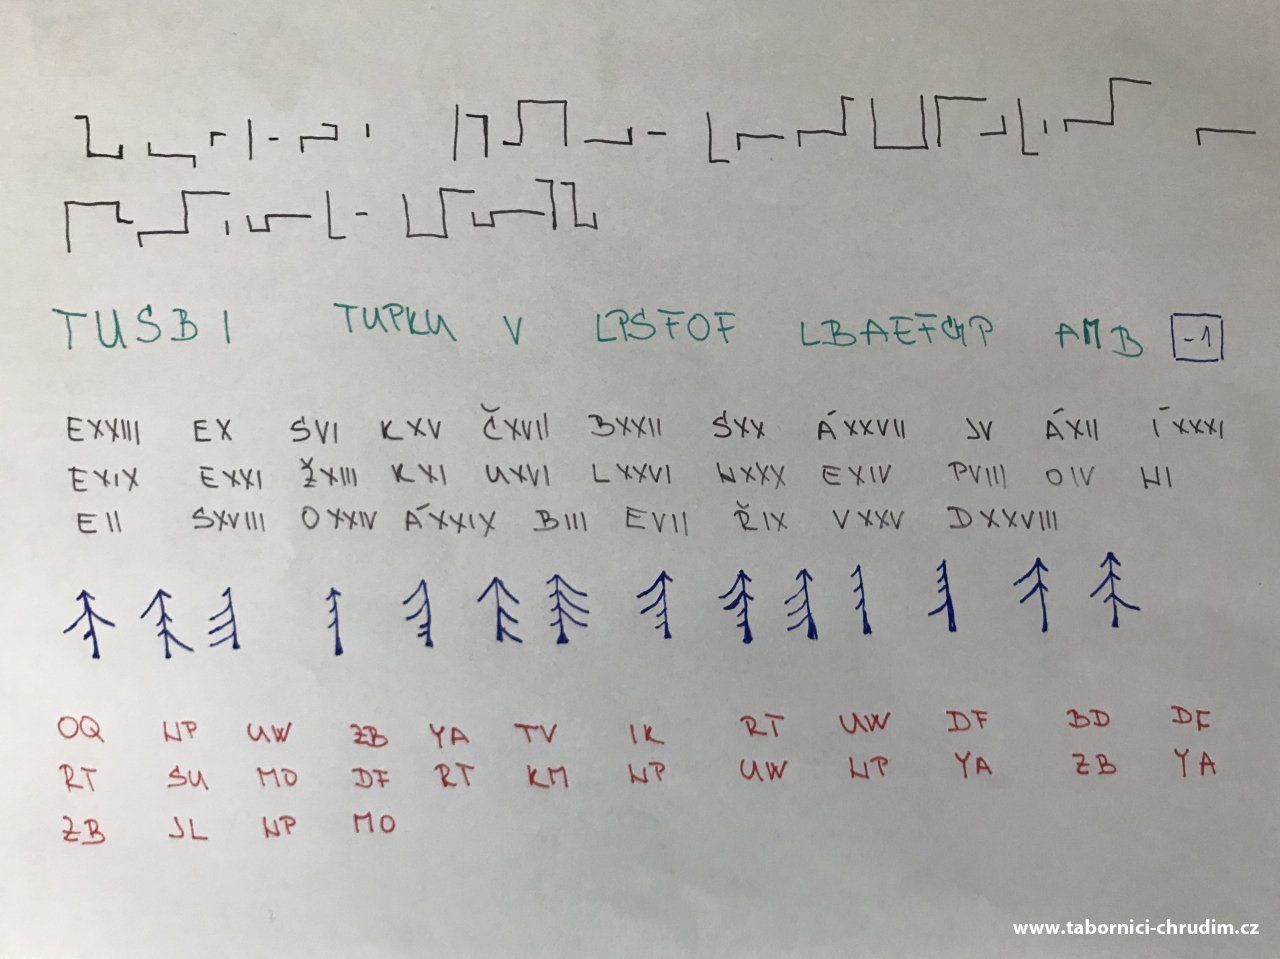 TUSBI TUPKU V LPSFOF LBAEFGP AMB -1
EXXIII EX SVI KXV ČXVII BXXII SXX ÁXXVII JV ÁXII ÍXXXI
EXIX EXXI ŽXIII KXI UXVI LXXVI NXXX EXIV PVIII OIV NI
EII SXVIII OXXIV ÁXXIX BIII EVII ŘIX VXXV DXXVIII
OQ NP UW ZB YA TV IK RT UW DF BD DF
RT SU MO DF RT KM NP UW NP YA ZB YA
ZB JL NP MO
www.tabornici-chrudim.cz